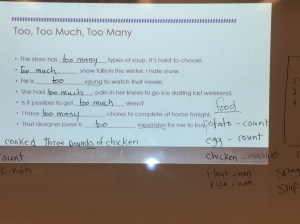 Too, Too Much, Too Many
• The store has too many types of soup. It's hard to choose.
• Too much snow falls in the winter. I hate snow.
• He is too young to watch that movie.
• She had too much pain in her knees to go ice skating last weekend.
• Is it possible to get too much sleep?
• I have too many chores to complete at home tonight.
• That designer purse is too expensive for me to buy.
food
potato - count
egg - count
chicken -
flour - non
rice - non
cooked three pounds of chicken
ount
c-non
soup